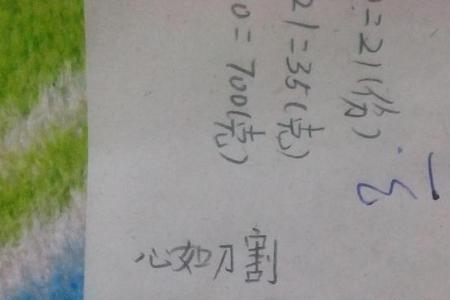 0=21(份)
21=35(克)
0=700(克)
心如刀割